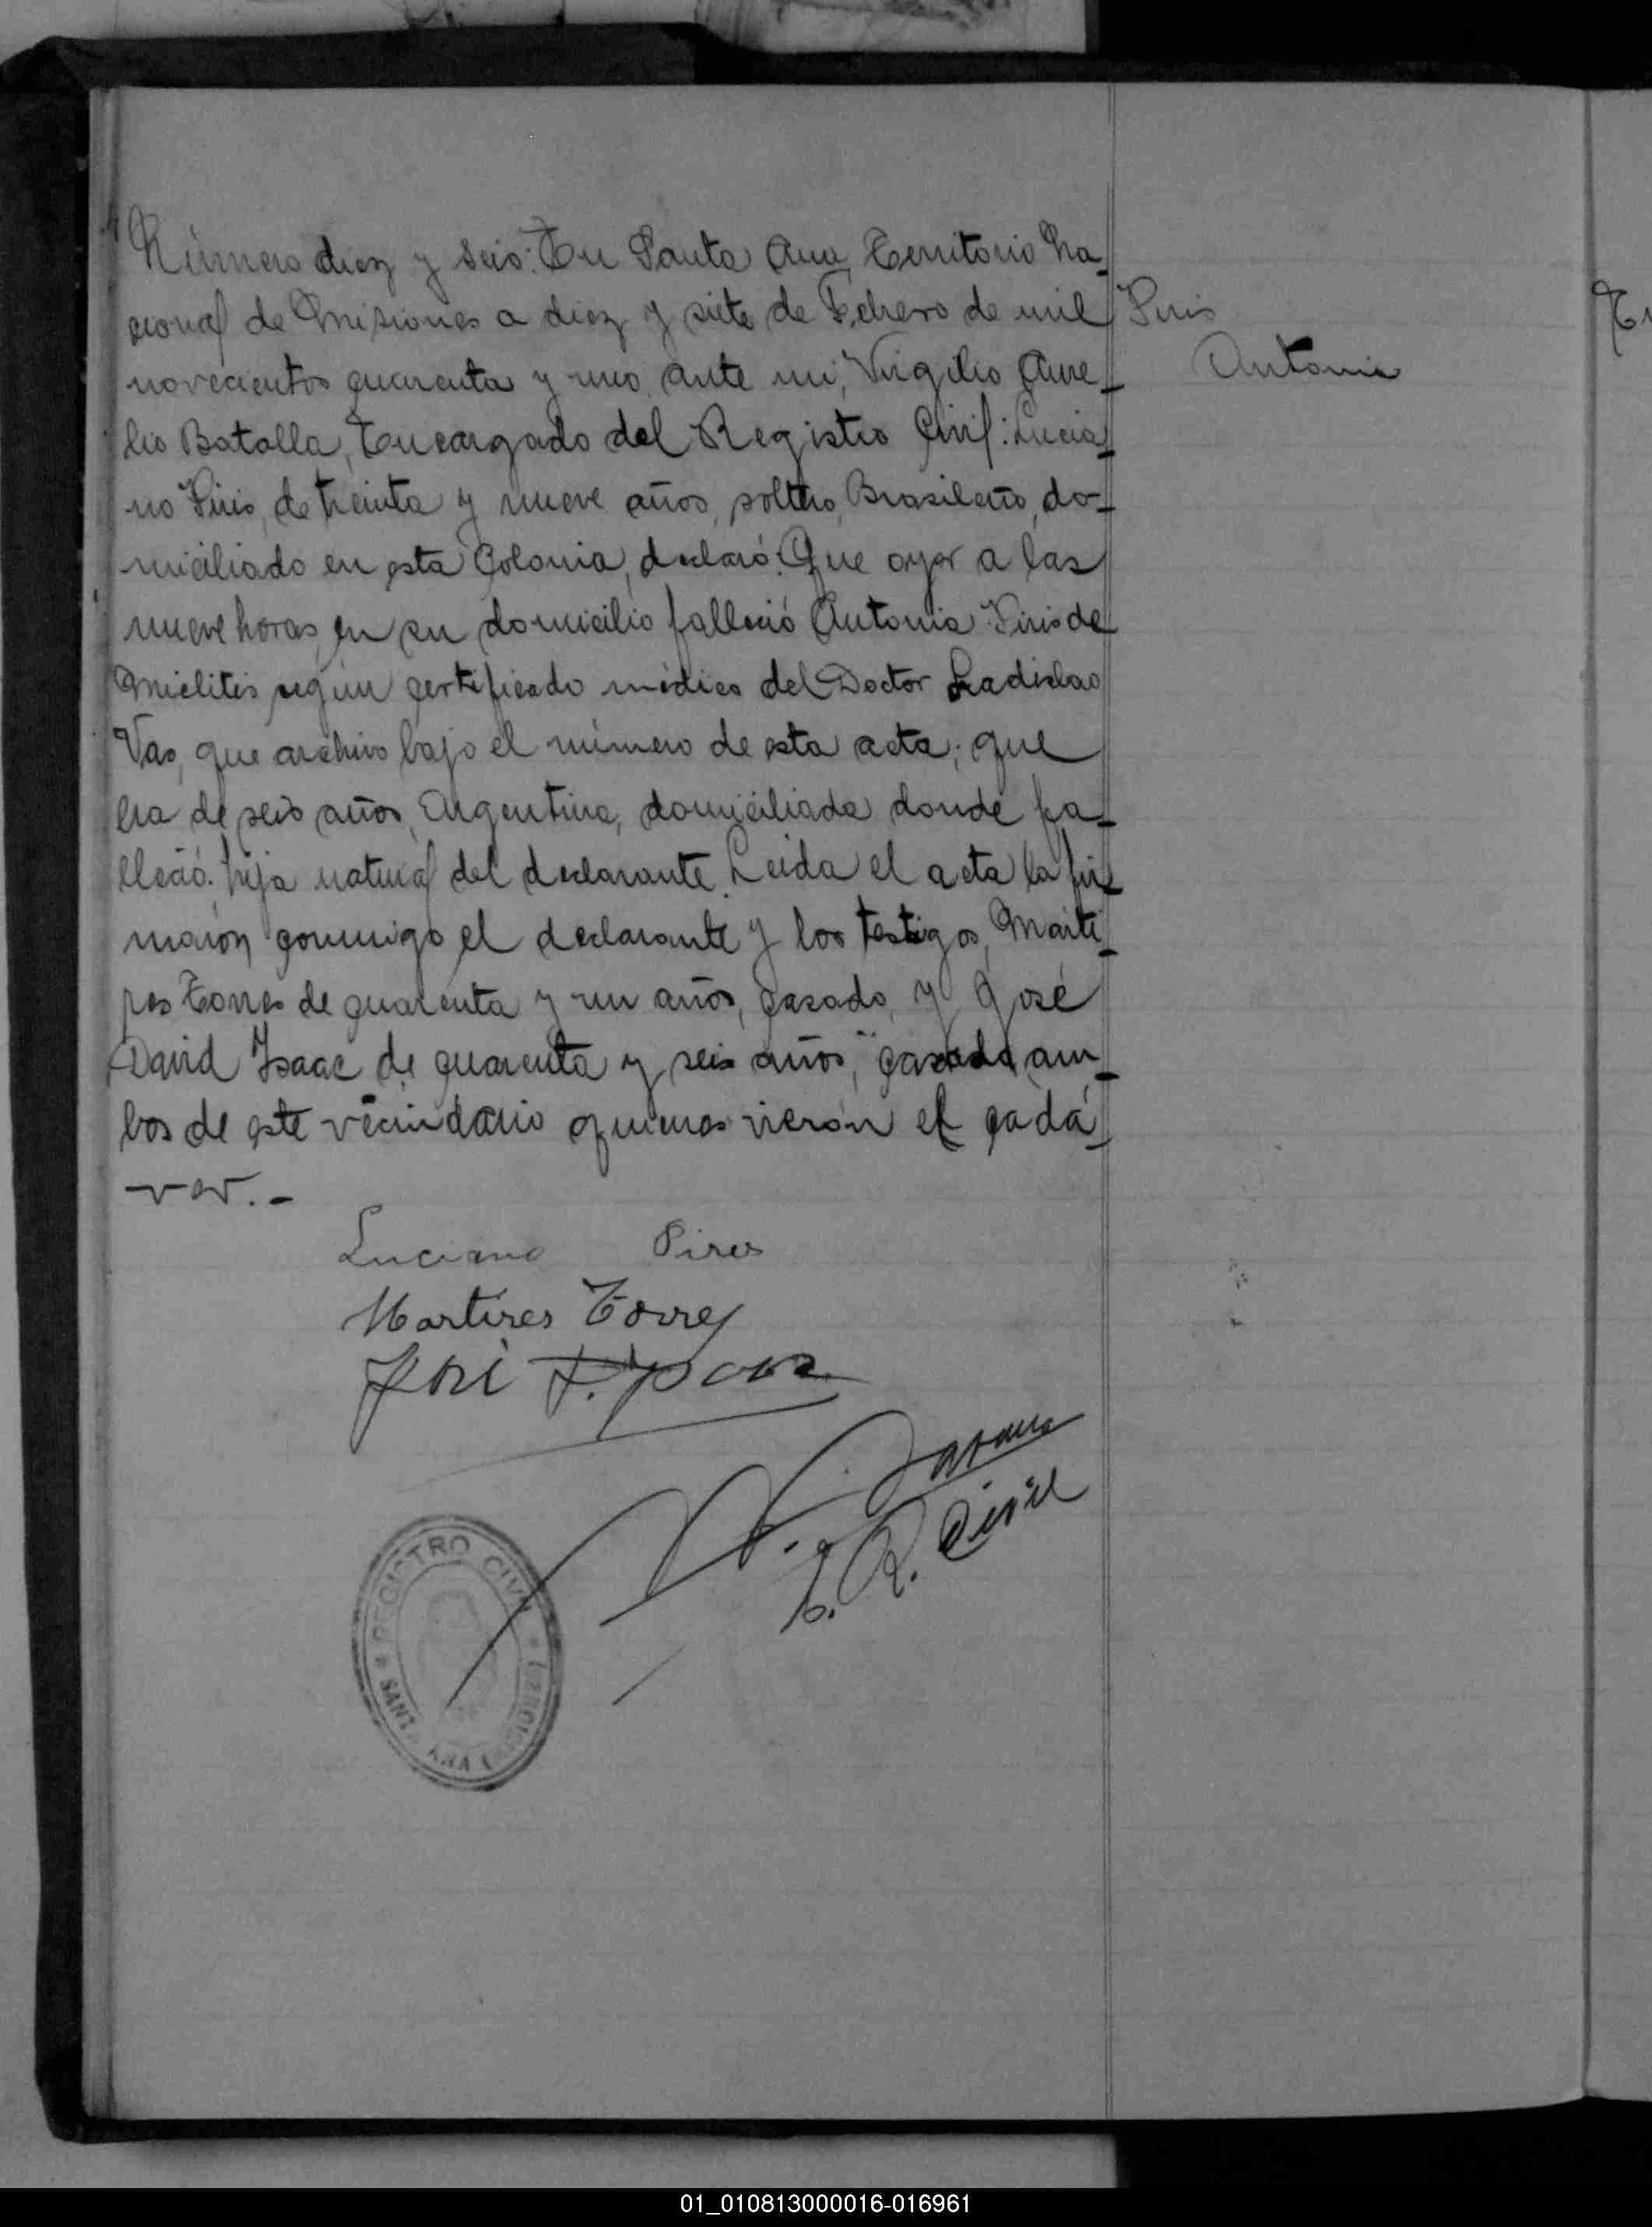 Número diez y seis: En Santa Ana, Territorio Na-
cional de Misiones a diez y siete de Febrero de mil
novecientos cuarenta y uno, ante mi, Virgilio Aure-
lio Batalla, Encargado del Registro Civil: Lucia-
no Piris, de treinta y nueve años, soltero, Brasileño, do-
miciliado en esta Colonia, declaró: Que ayer a las
nueve horas, en su domicilio falleció Antonia Piris de
Mielitis según certificado médico del Doctor Ladislao
Vas, que archivo bajo el número de esta acta; que
era de seis años, Argentina, domiciliada donde fa-
lleció. hija natural del declarante. Leida el acta la fir-
maron conmigo el declarante y los testigos, Marti-
res Torres de cuarenta y un años, casado, y José
David Isaac de cuarenta y seis años, casado, am-
bos de este vecindario quienes vieron el cadá-
ver.-
Piris
Antonia
Luciano Pires
Martires Torres
José D. Isaac
E. R. Civil
REGISTRO CIVIL
SANTA ANA (MISIONES)
01_010813000016-016961